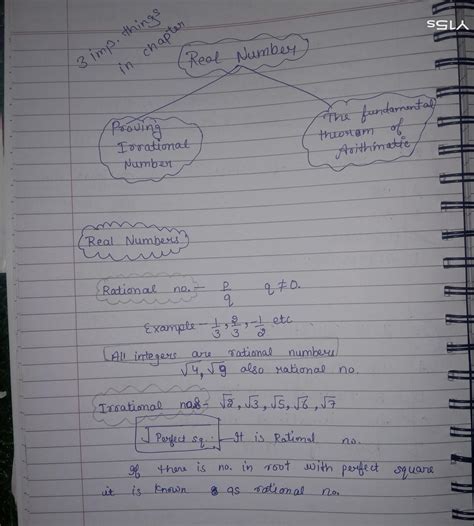 3 imp. things
in chapter
Real Number
Y15s
Proving
Irrational
Number
The fundamental
theorom of
Arithimatic
Real Numbers
Rational no. - p/q q ≠ 0.
Example - 1/3, 2/3, -1/2 etc
All integers are rational numbers
√4, √9 also rational no.
Irrational nos - √2, √3, √5, √6, √7
√Perfect sq. - It is Rational no.
If there is no. in root with perfect square
it is known as rational no.